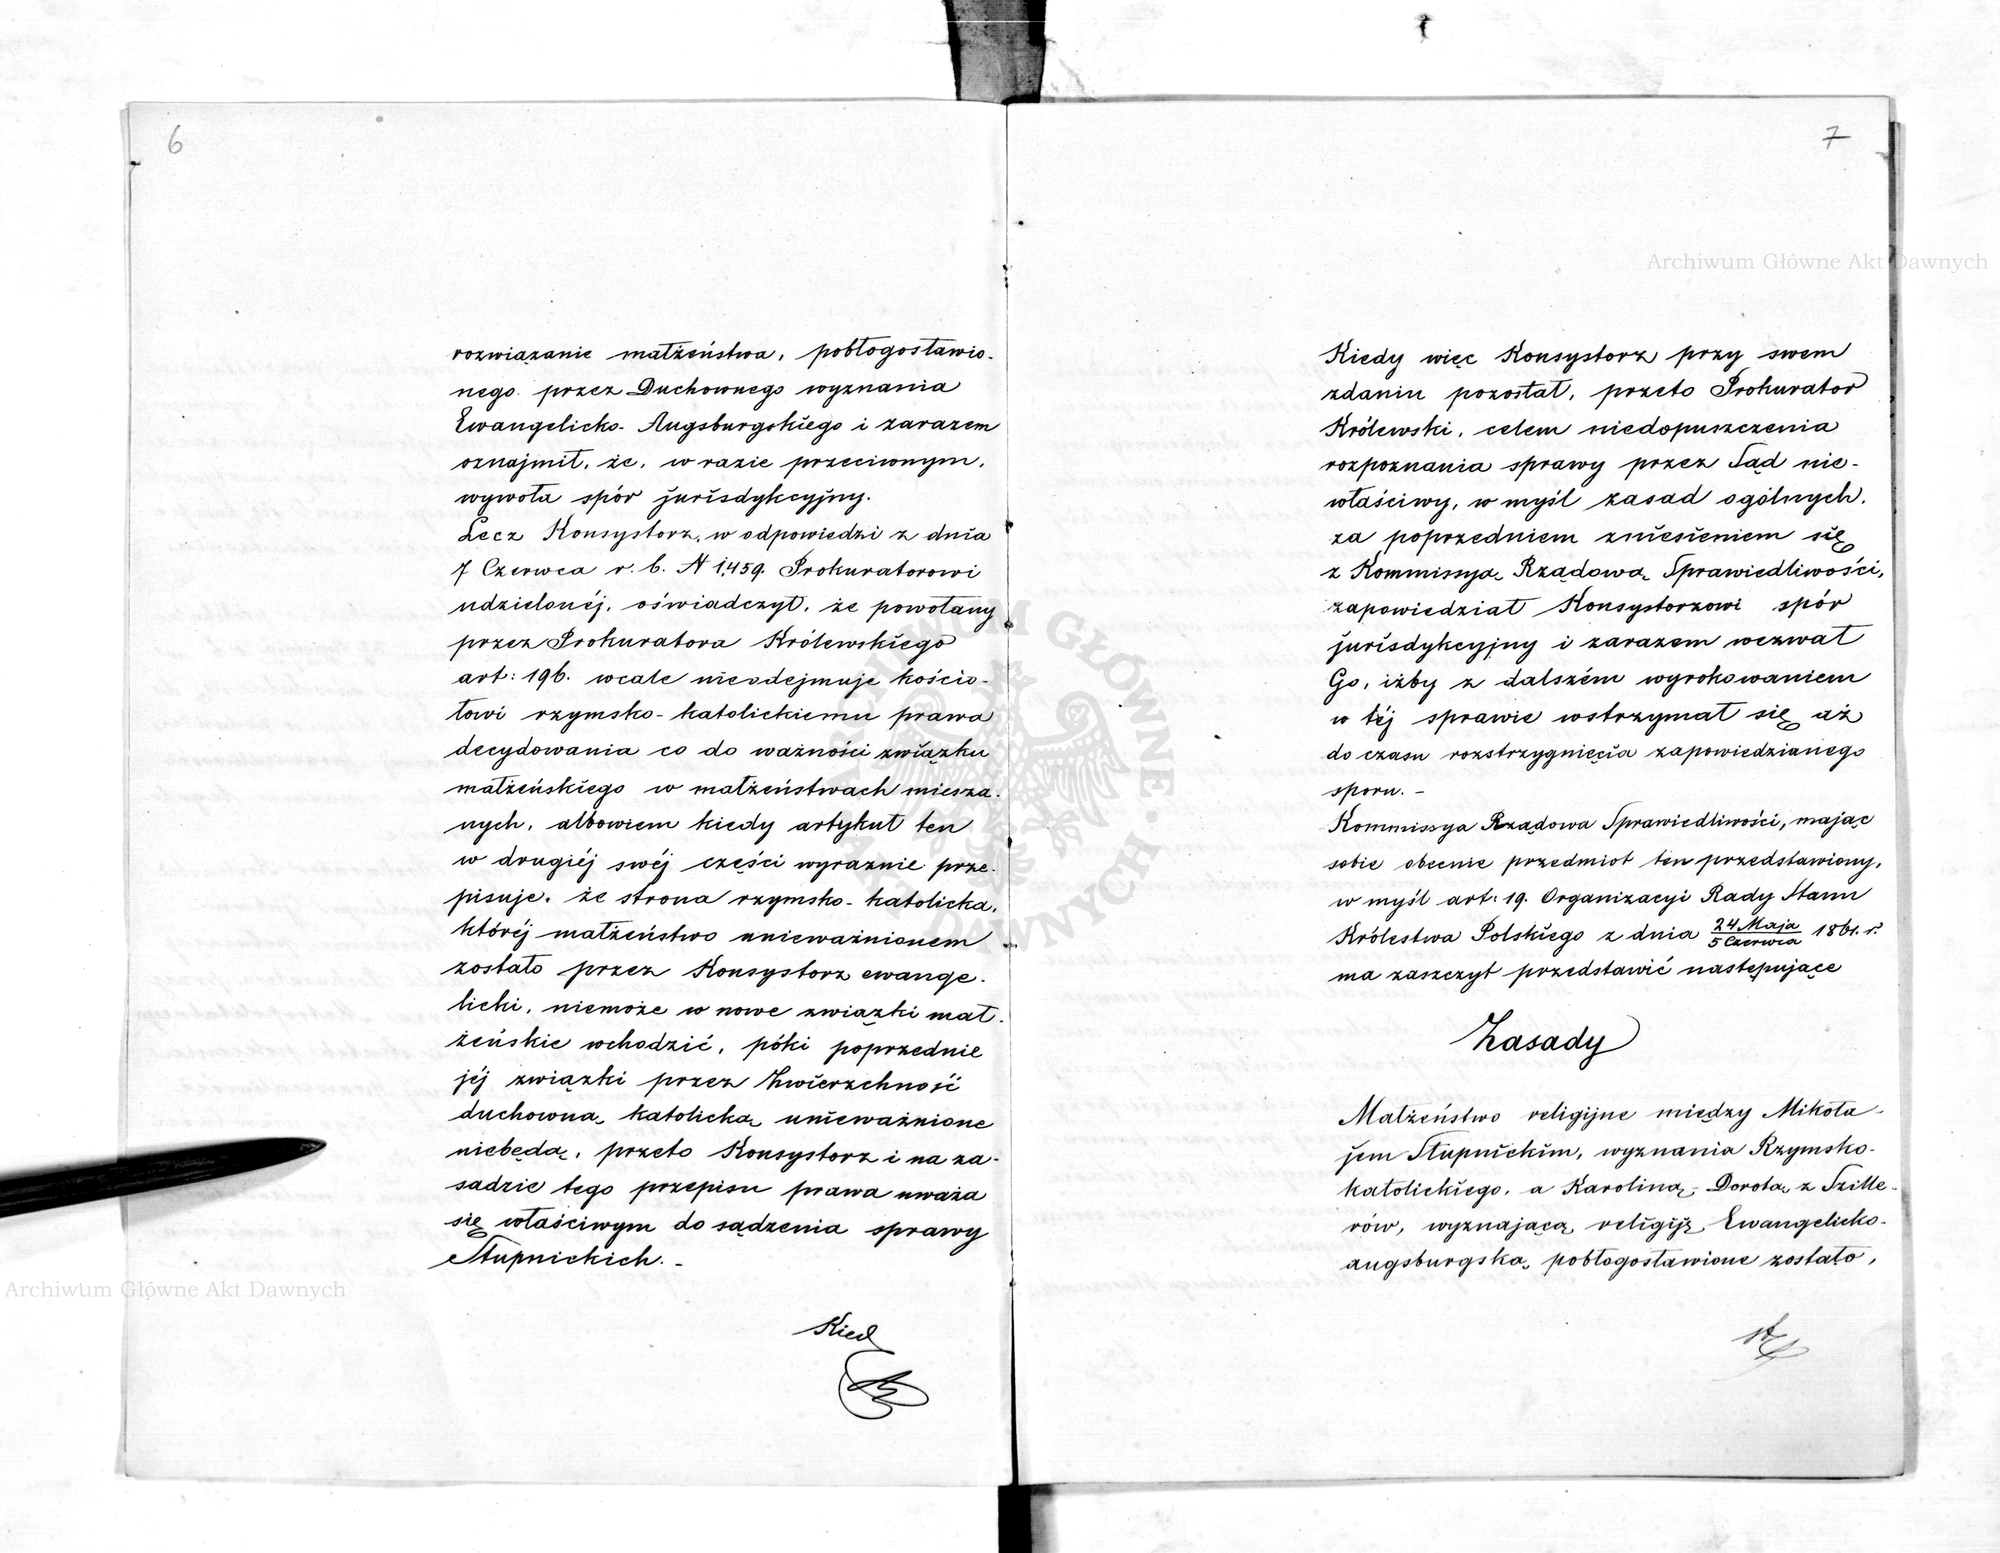 6
rozwiązanie małżeństwa, pobłogosławio-
nego przez Duchownego wyznania
Ewangelicko-Augsburgskiego i zarazem
oznajmił, że, w razie przeciwnym,
wywoła spór jurisdykcyjny.
Lecz Konsystorz, w odpowiedzi z dnia
7 Czerwca r. b. N 1,459. Prokuratorowi
udzielonéj, oświadczył, że powołany
przez Prokuratora Królewskiego
art: 196. wcale nieodejmuje kościo-
łowi rzymsko-katolickiemu prawa
decydowania co do ważności związku
małżeńskiego w małżeństwach miesza-
nych, albowiem kiedy artykuł ten
w drugiéj swéj części wyraznie prze-
pisuje, że strona rzymsko-katolicka,
któréj małżeństwo unieważnionem
zostało przez Konsystorz ewange-
licki, niemoże w nowe związki mał-
żeńskie wchodzić, póki poprzednie
jéj związki przez Zwierzchność
duchowną katolicką unieważnione
niebędą, przeto Konsystorz i na za-
sadzie tego przepisu prawa uważa
się właściwym do sądzenia sprawy
Słupnickich. -
Kied
7
Kiedy więc Konsystorz przy swem
zdaniu pozostał, przeto Prokurator
Królewski, celem niedopuszczenia
rozpoznania sprawy przez Sąd nie-
właściwy, w myśl zasad ogólnych,
za poprzedniem zniesieniem się
z Kommissyą Rządową Sprawiedliwości,
zapowiedział Konsystorzowi spór
jurisdykcyjny i zarazem wezwał
Go, iżby z dalszém wyrokowaniem
w téj sprawie wstrzymał się aż
do czasu rozstrzygnięcia zapowiedzianego
sporu. -
Kommissya Rządowa Sprawiedliwości, mając
sobie obecnie przedmiot ten przedstawiony,
w myśl art: 19. Organizacyi Rady Stanu
Królestwa Polskiego z dnia 24 Maja/5 Czerwca 1861. r.
ma zaszczyt przedstawić następujące
Zasady
Małżeństwo religijne między Mikoła-
jem Słupnickim, wyznania Rzymsko-
katolickiego, a Karoliną-Dorotą z Szille-
rów, wyznającą religiję Ewangelicko-
augsburgską, pobłogosławione zostało,
Archiwum Główne Akt Dawnych
Archiwum Główne Akt Dawnych
ARCHIWUM GŁÓWNE AKT DAWNYCH